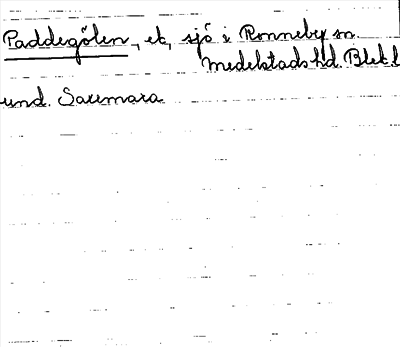 Paddegölen, ek, sjö i Ronneby sn.
Medelstads hd. Blek. l
und. Saxemara.